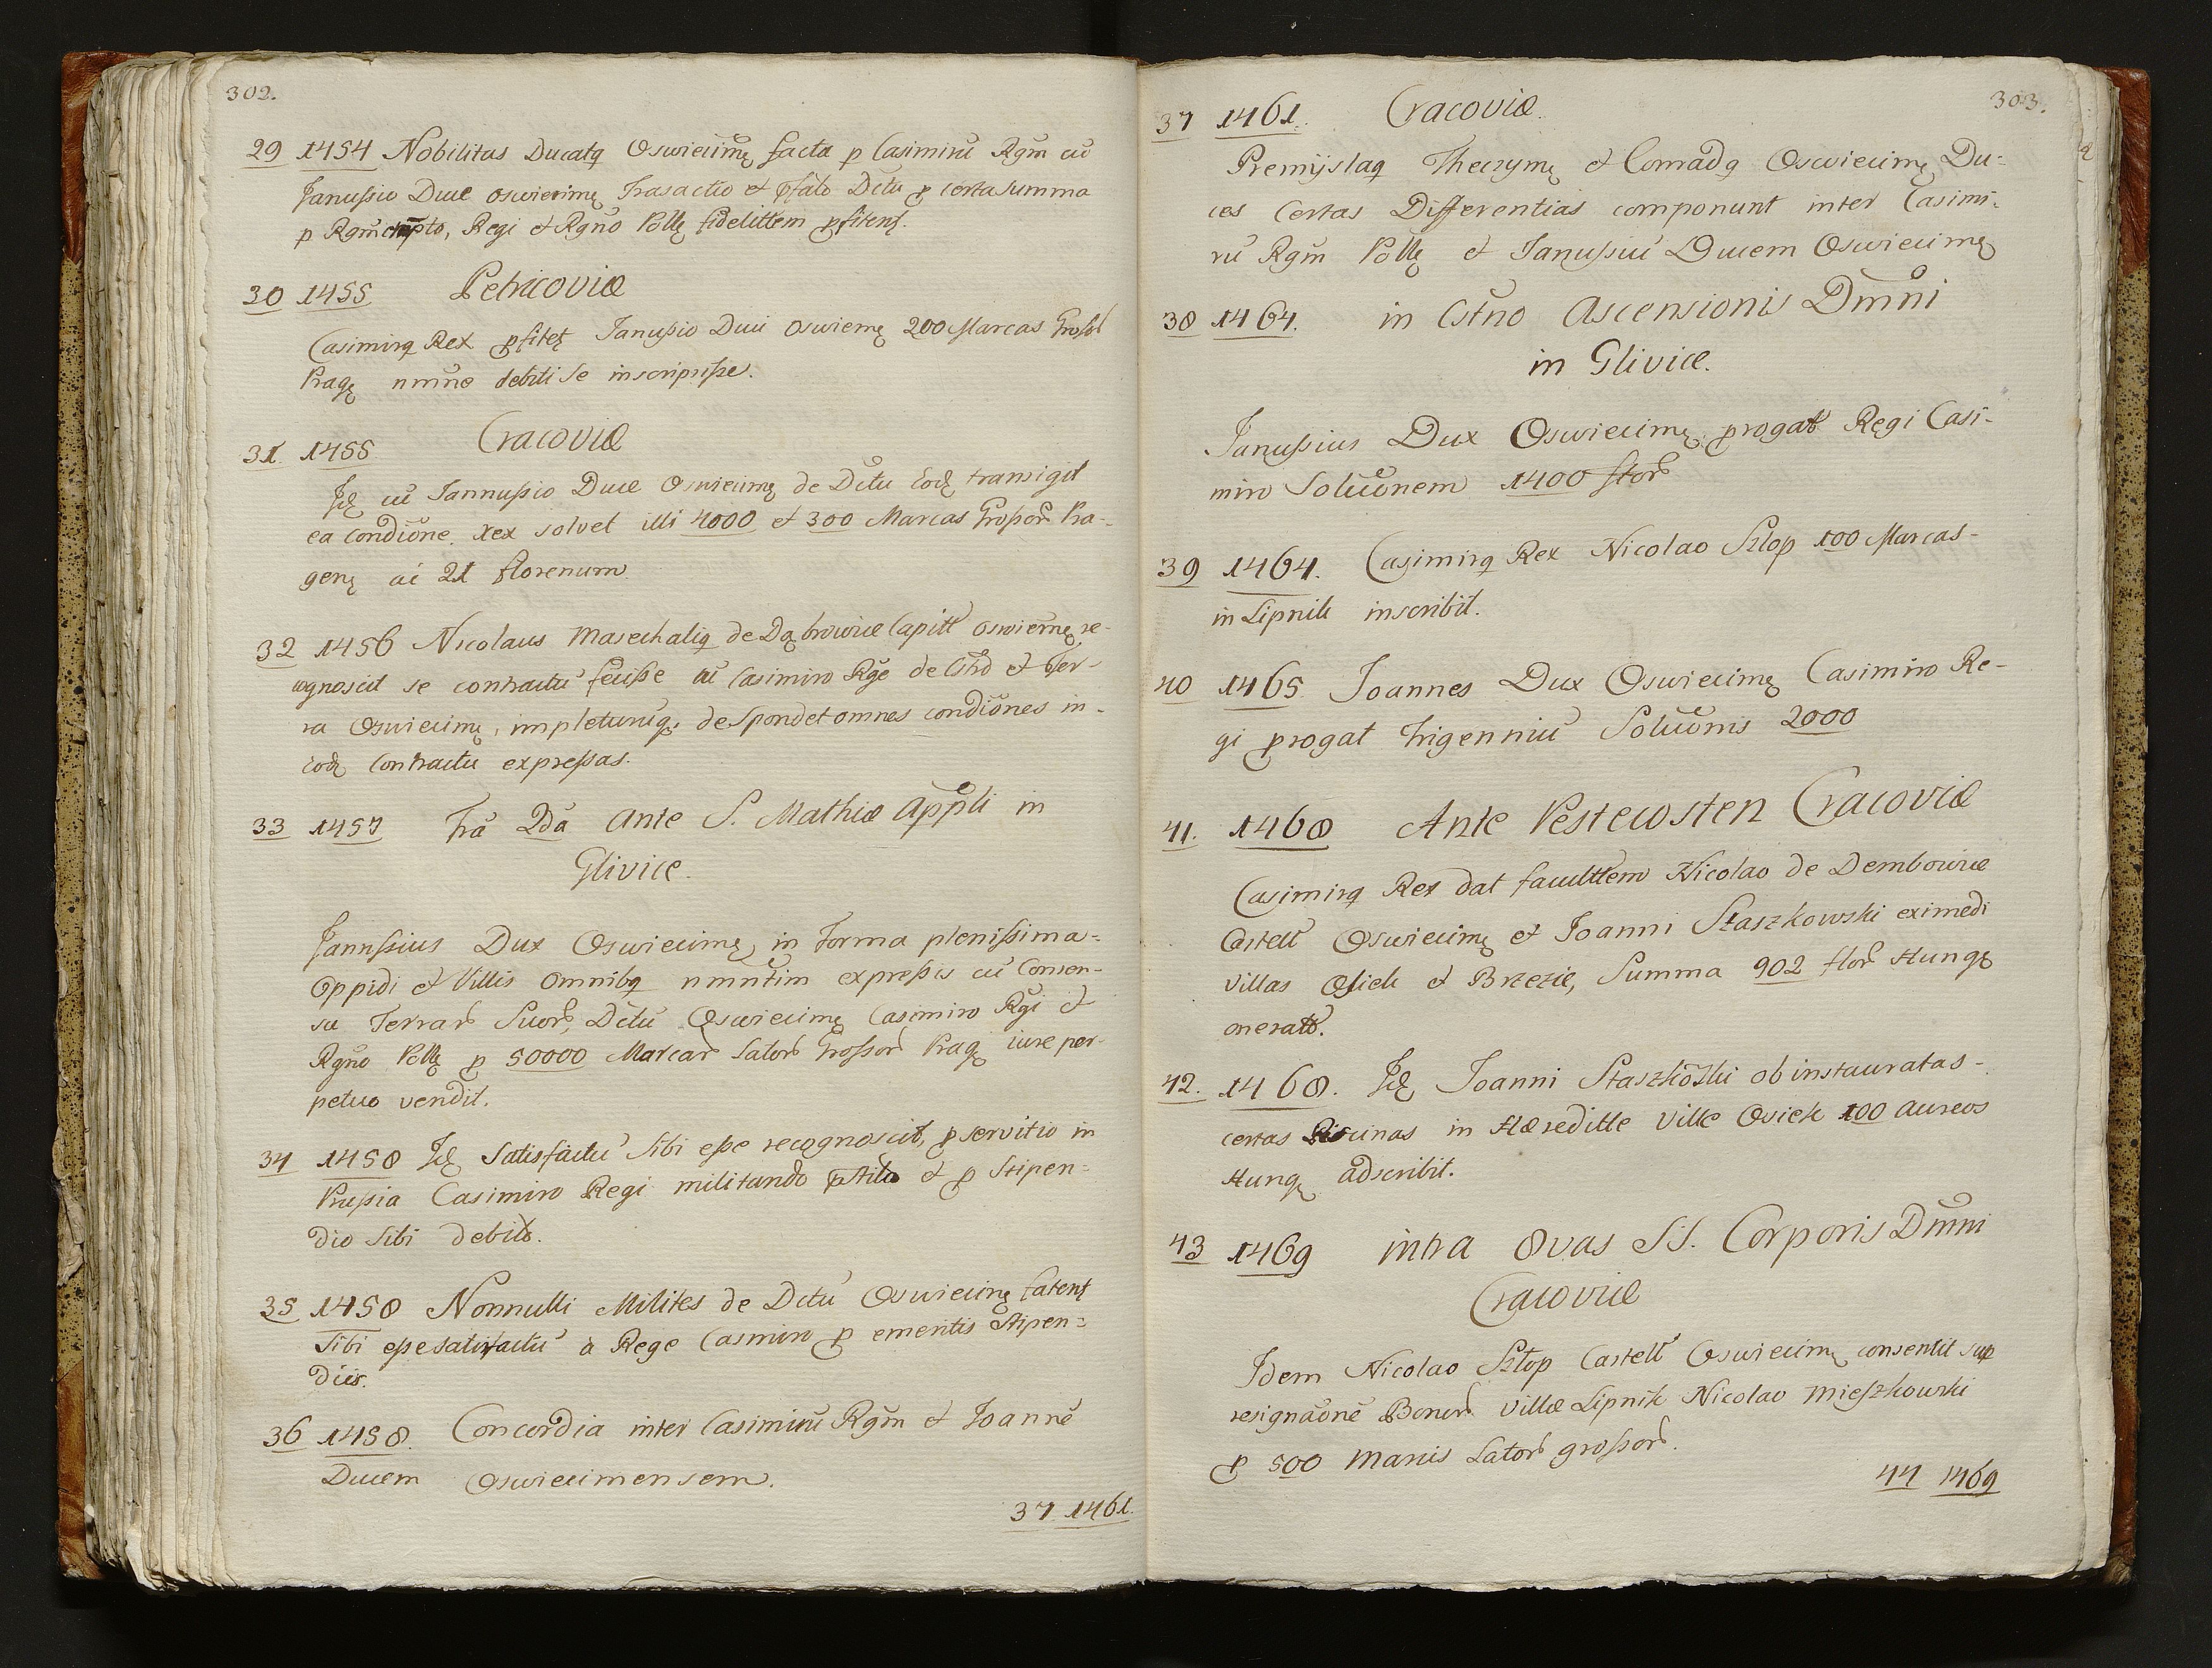 302.
29 1454 Nobilitas Ducatq Oswiecimę facta p Casimirū Rgm̄ cū
Janußio Duce oswiecimę Trasactio et pfato Dctu p certa summa
p Rgm̄ empto, Regi et Rgn̄o Pollę fidelittem pfitent.
30 1455 Petricoviæ
Casimirq Rex pfitet Janußio Duci oswiemę 200 Marcas Großor
Pragę nmn̄e debiti se inscripsiße.
31. 1455 Cracoviæ
Jdę cū Jannußio Duce Oswiecimę de Dctu Eodę transigit
ea Condiōne. rex solvet illi 4000 et 300 Marcas Großor Pra-
genę ac 21 florenum
32 1456 Nicolaus Marechaliq de Dąbrowice Capitt oswiemę re-
cognoscit se contractū feciße cū Casimiro Rge de Cstro et Ter-
ra Oswiecimę, impleturūq; despondet omnes condiōnes in-
eodę Contractu expreßas.
33 1457 Fra 2da ante S. Mathiæ Appli in
Glivice.
Jannßius Dux Oswiecimę in Forma plenißima-
Oppidi et Villis omnibq nmn̄tim expreßis cū Consen-
su Terrar Suor, Dctū Oswiecimę Casimiro Rgi et
Rgn̄o Pollę p 50000 Marcar Lator Großor Pragę iure per-
petuo vendit.
34 1458 Jdę Satisfactū Sibi eße recognoscit, p servitio in
Prußia Casimiro Regi militando pstito et p Stipen-
dio Sibi debito.
35 1458 Nonnulli Milites de Dctu Oswiecimę fatent
Sibi eße satisfactū à Rege Casmiro p emeritis Stipen-
diis.
36 1458. Concordia inter Casimirū Rgm̄ et Joannē
Ducem Oswiecimensem.
37 1461.
303.
37 1461. Cracoviæ.
Premÿslaq Thessynę et Conradq Oswiecimę Du-
ces Certas Differentias componunt inter Casimi-
rū Rgm̄ Pollę et Janußiū Ducem Oswiecimę
38 1464. in Cstn̄o Ascensionis Dmn̄i
in Glivice.
Janußius Dux Oswiecimę progat Regi Casi-
miro Soluōnem 1400 flor
39 1464. Casimirq Rex Nicolao Szlop 100 Marcas-
in Lipnik inscribit.
40 1465. Joannes Dux Oswiecimę Casimiro Re-
gi progat trigenniū Soluōnis 2000
41. 1468 Ante Pestecosten Cracoviæ
Casimirq Rex dat facultt̄em Nicolao de Dembowice
Castell Oswiecimę et Joanni Staszkowski eximedi
villas Osiek et Brzezie, Summa 902 flor Hungę
oneratt.
42. 1468. Jdę Joanni Staszkōski ob instauratas-
certas Piscinas in Hæreditte Villæ Osiek 100 aureos
Hungę adscribit.
43 1469 intra 8vas SS. Corporis Dmn̄i
Cracoviæ
Jdem Nicolao Szłop Castell Oswiecimę consentit sup
resignaōnē Bonor Villæ Lipnik Nicolao Mießzkowski
p 500 Marcis Lator großor.
44 1469